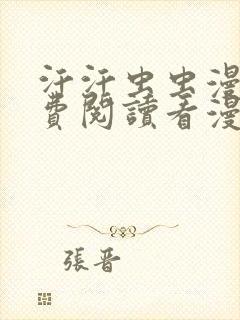 汗汗虫虫漫
費閱讀看漫
張晋